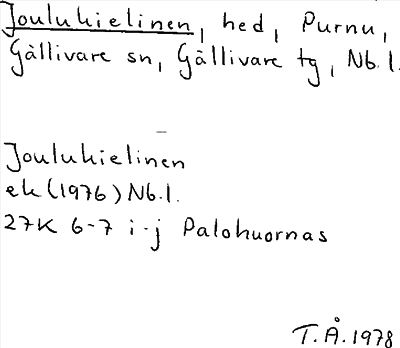 Joulukielinen, hed, Purnu,
Gällivare sn, Gällivare tg, Nb.l.
Joulukielinen
ek (1976) Nb.l.
27K 6-7 i-j Palohuornas
T.Å. 1978